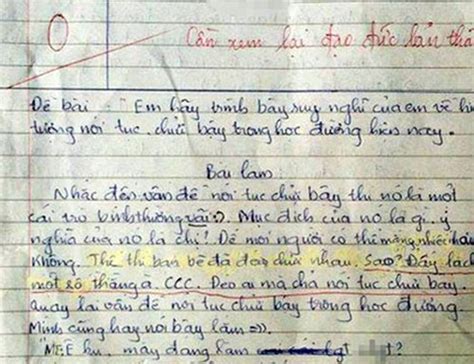 0
Cần xem lại đạo đức bản thâ
Đề bài : "Em hãy trình bày suy nghĩ của em về hi
tượng nói tục, chửi bậy trong học đường hiện nay.
Bài làm
Nhắc đến vấn đề nói tục chửi bậy thì nó là một
cái trò bình thường vãi :). Mục đích của nó là gì, ý
nghĩa của nó là chi! Để mọi người có thể mắng nhiếc
Không. Thế thì bạn bè đã chửi nhau. Sao? Đấy là
một số thằng ạ. CCC. Đéo ai mà chả nói tục chửi bậy.
quay lại vấn đề nói tục chửi bậy trong học đường.
Mình cũng hay nói bậy lắm =)).
ku, mày đang làm